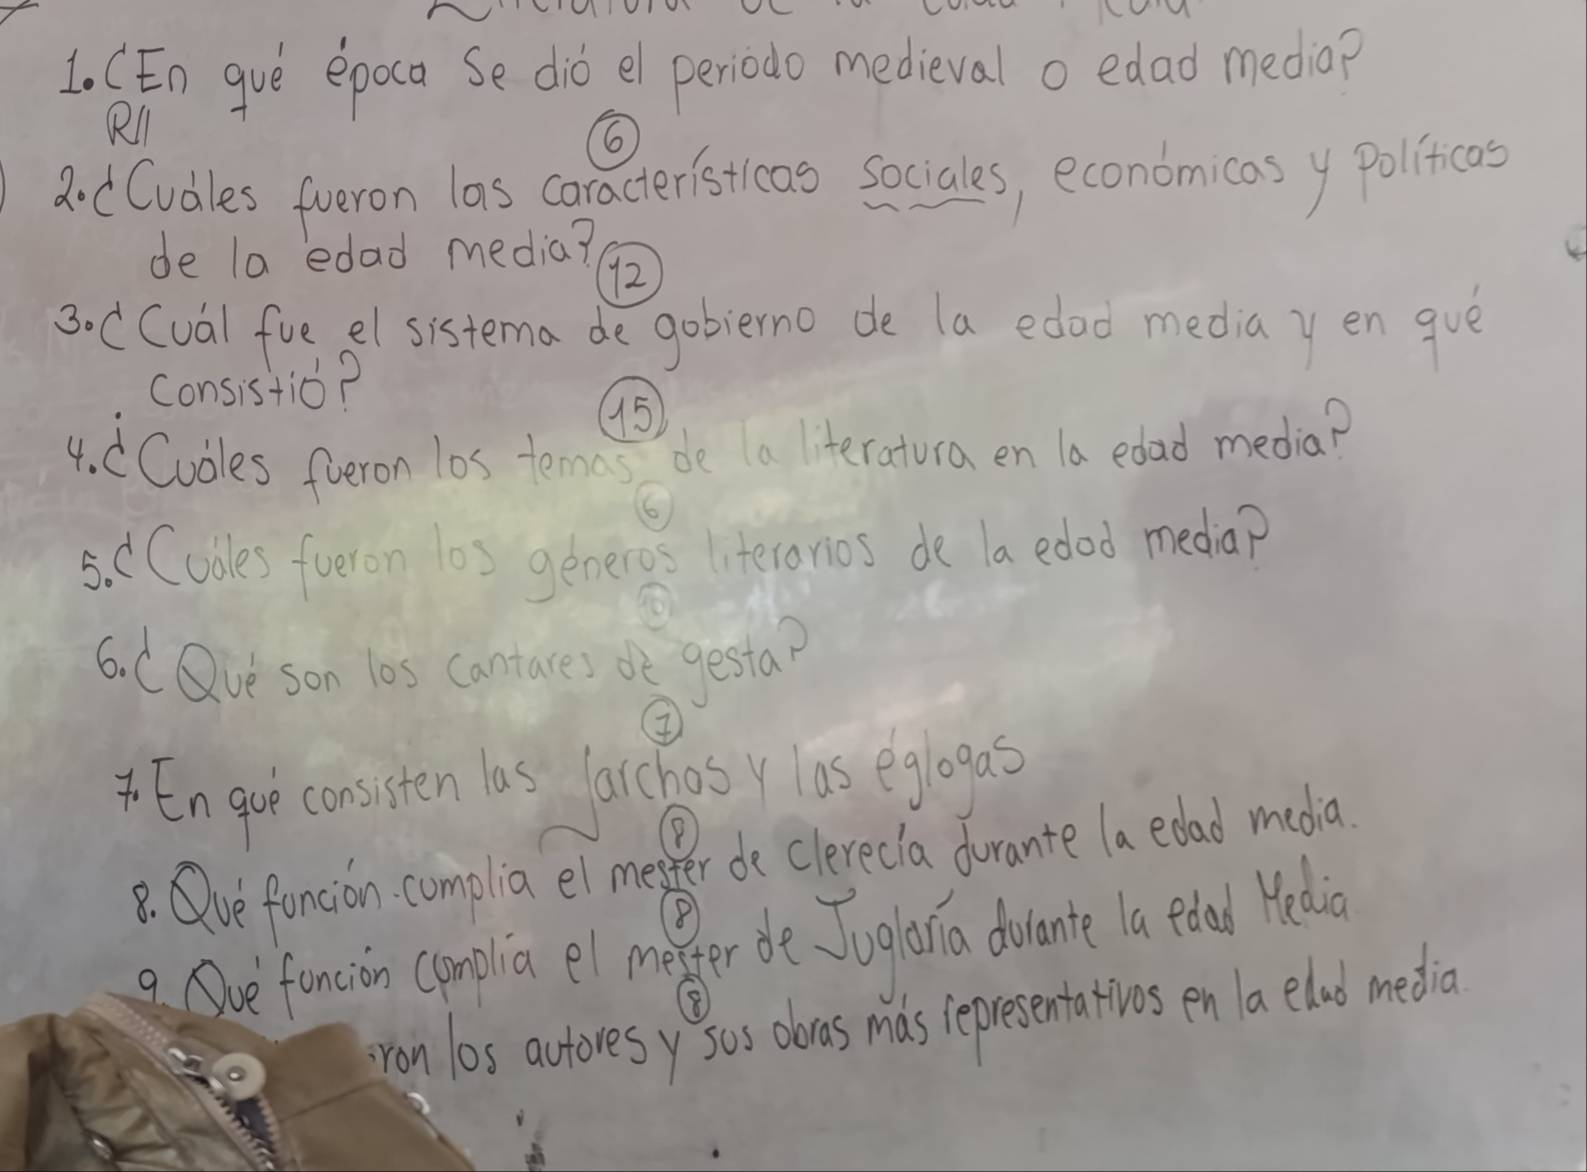 1. ¿En qué época se dió el periódo medieval o edad media?
R//
6
2. ¿Cuáles fueron las características sociales, económicas y políticas
de la edad media?
12
3. ¿Cuál fue el sistema de gobierno de la edad media y en qué
consistió?
15
4. ¿Cuáles fueron los temas de la literatura en la edad media?
6
5. ¿Cuáles fueron los géneros literarios de la edad media?
10
6. ¿Qué son los cantares de gesta?
7
7. En qué consisten las Jarchas y las églogas
8
8. Qué función cumplia el mester de clerecía durante la edad media.
8
9. Qué función cumplía el mester de Juglaría durante la edad Media
8
ron los autores y sus obras más representativos en la edad media.